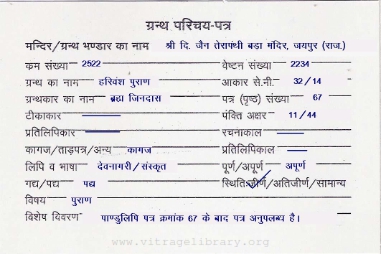 ग्रन्थ परिचय-पत्र
मन्दिर/ग्रन्थ भण्डार का नाम श्री दि. जैन तेरापंथी बडा मंदिर, जयपुर (राज.)
क्रम संख्या 2522 वेष्टन संख्या 2234
ग्रन्थ का नाम हरिवंश पुराण आकार से.मी. 32/14
ग्रन्थकार का नाम ब्रह्म जिनदास पत्र (पृष्ठ) संख्या 67
टीकाकार पंक्ति अक्षर 11/44
प्रतिलिपिकार रचनाकाल
कागज/ताड़पत्र/अन्य कागज प्रतिलिपिकाल
लिपि व भाषा देवनागरी/संस्कृत पूर्ण/अपूर्ण अपूर्ण
गद्य/पद्य पद्य स्थिति जीर्ण/अतिजीर्ण/सामान्य
विषय पुराण
विशेष विवरण पाण्डुलिपि पत्र क्रमांक 67 के बाद पत्र अनुपलब्ध है।
www.vitragelibrary.org